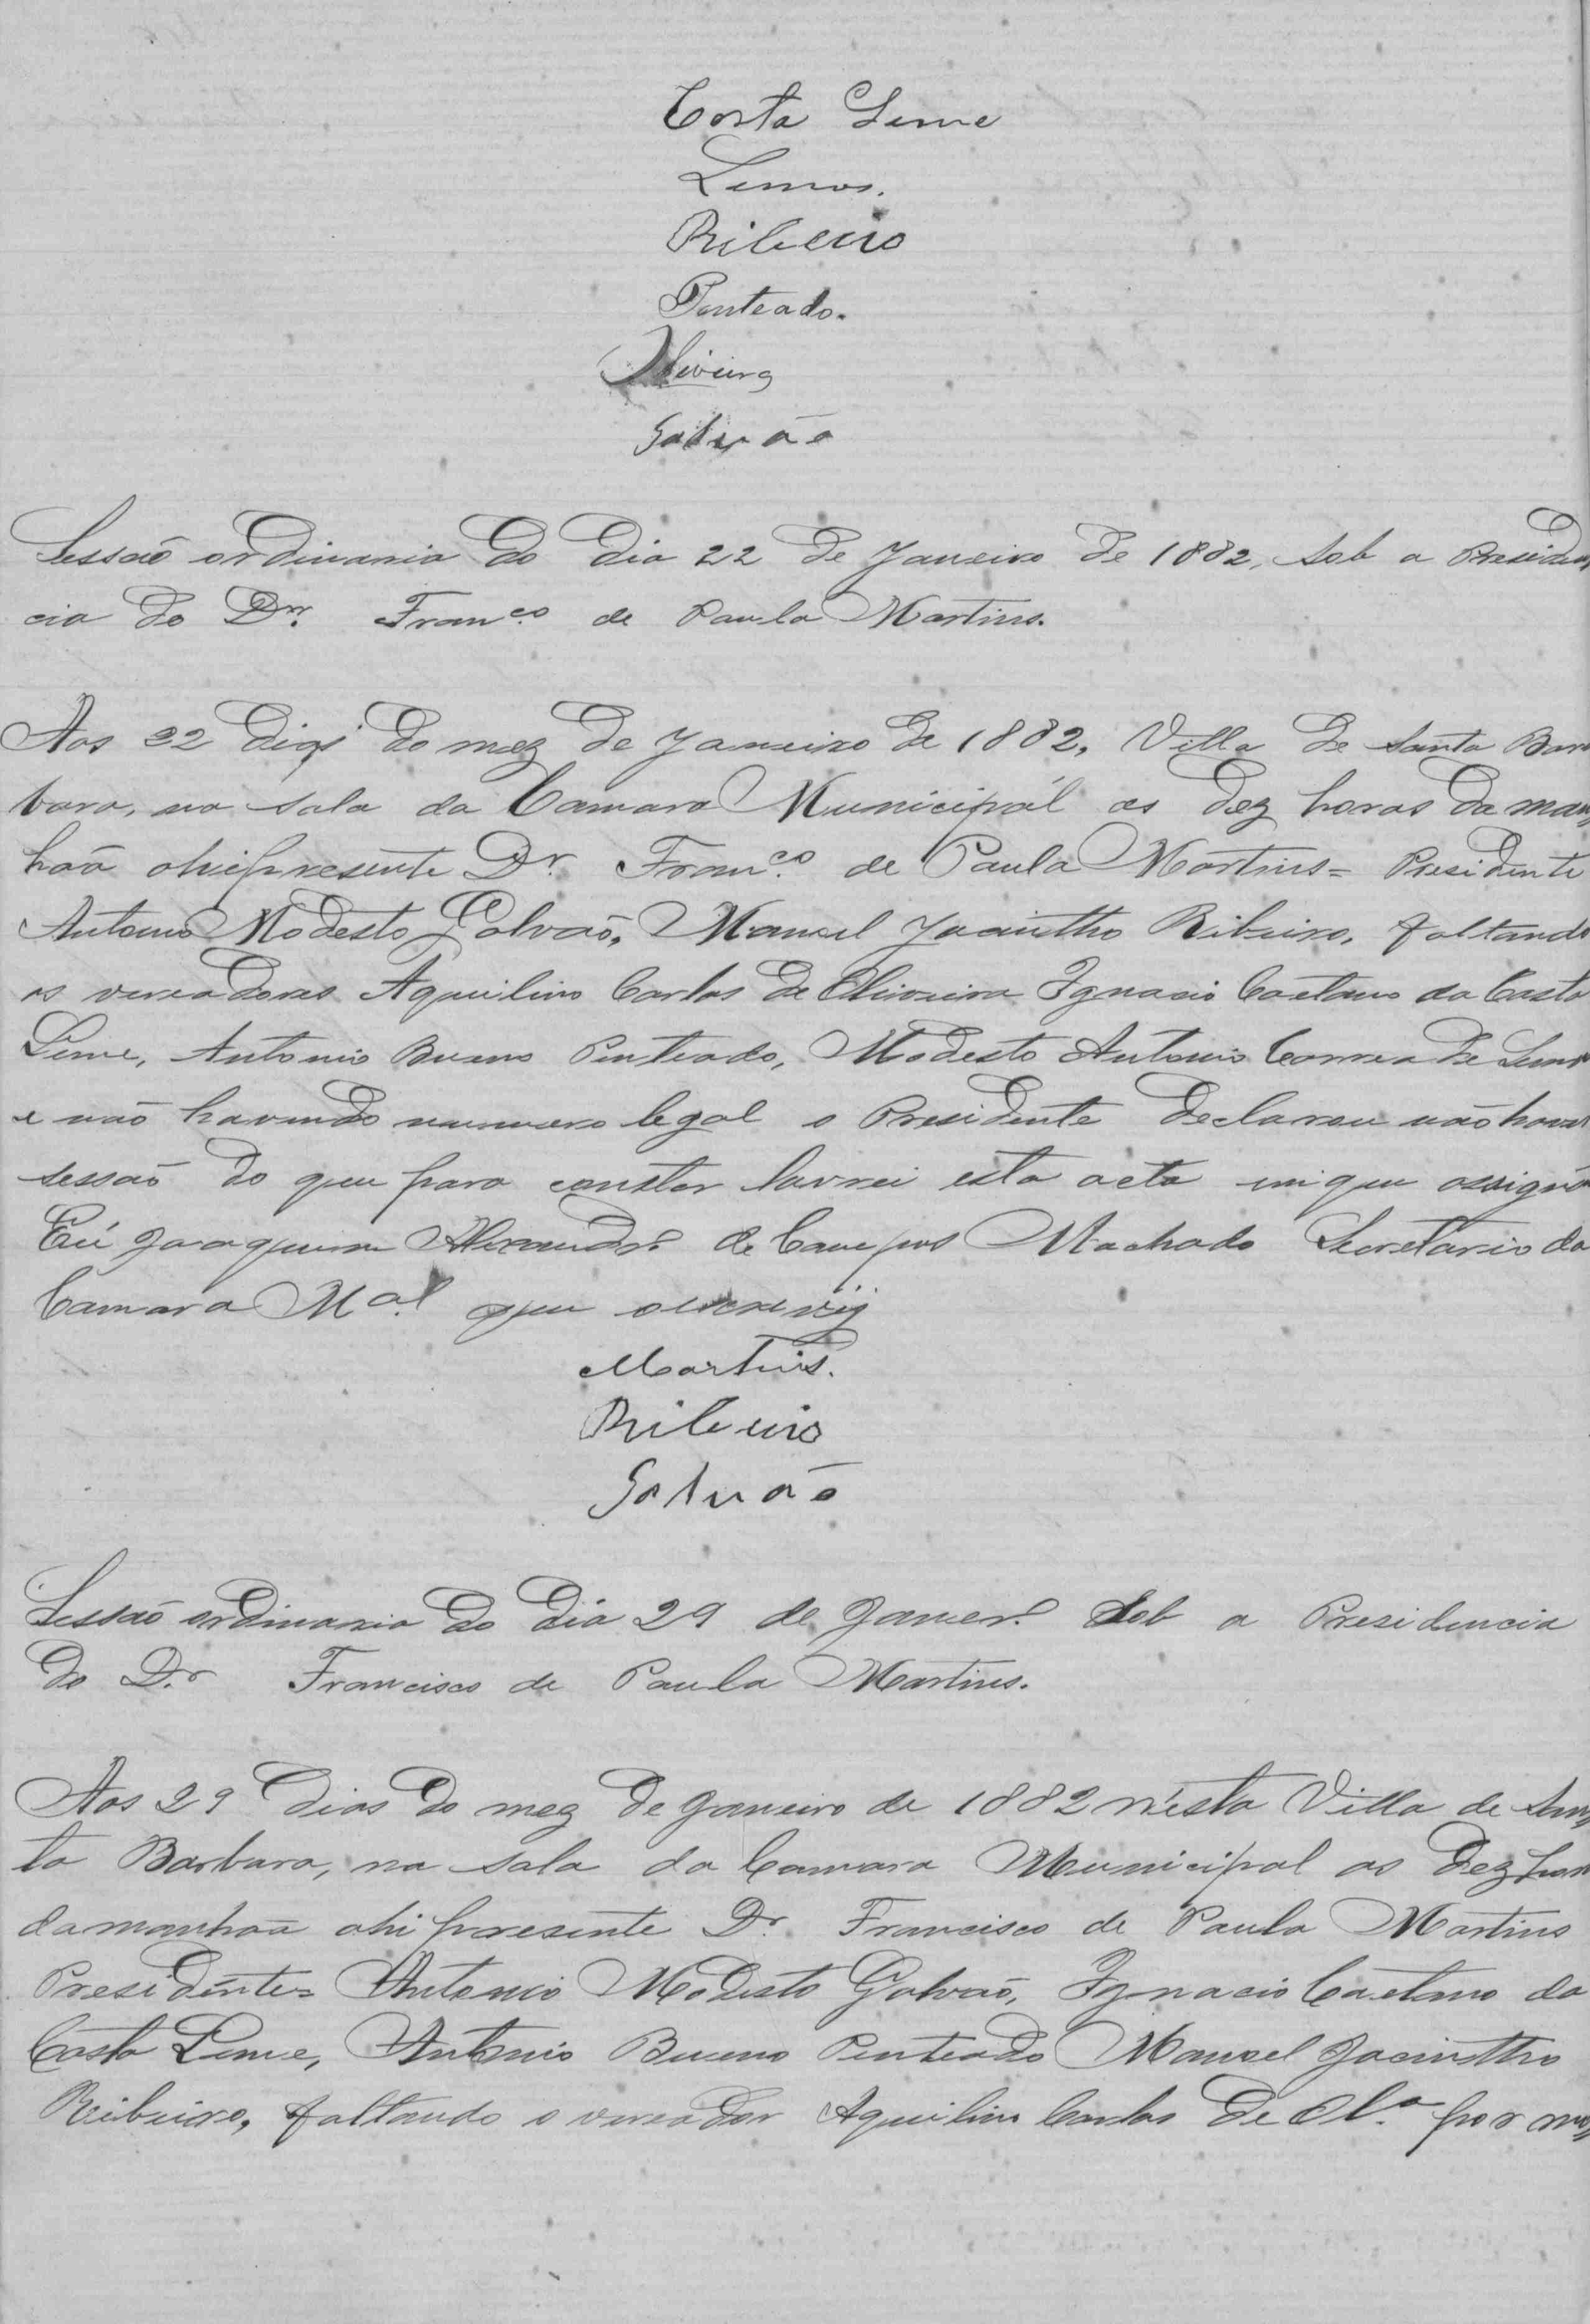 Costa Leme
Lemos.
Ribeiro
Penteado.
Oliveira
Galvão
Sessão ordinaria do dia 22 de Janeiro de 1882, sob a Presiden
cia do Dr. Franco. de Paula Martins.
Aos 22 dias do mez de Janeiro de 1882, Villa de Santa Bar
bara, na sala da Camara Municipal as dez horas da man
haã ahi presente Dr. Franco. de Paula Martins = Presidente
Antonio Modesto Galvaõ, Manoel Jacintho Ribeiro, faltando
os vereadores Aquilino Carlos de Oliveira Ignacio Caetano da Costa
Leme, Antonio Bueno Penteado, Modesto Antonio Correa de Lemos
e não havendo numero legal o Presidente declarou não haver
sessaõ do que para constar lavrei esta acta em que assignão
Eú Joaquim Alexandre de Campos Machado Secretario da
Camara Mal. que escrevij
Martins.
Ribeiro
Galvão
Sessaõ ordinaria do dia 29 de Janero. Sob a Presidencia
do Dr. Francisco de Paula Martins.
Aos 29 dias do mez de Janeiro de 1882 n'esta Villa de San
ta Barbara, na sala da Camara Municipal as dez horas
da manhaã ahi presente Dr. Francisco de Paula Martins
Presidente = Antonio Modesto Galvaõ, Ignacio Caetano da
Costa Leme, Antonio Bueno Penteado Manoel Jacinttho
Ribeiro, faltando o vereador Aquilino Carlos de Ola. por mo